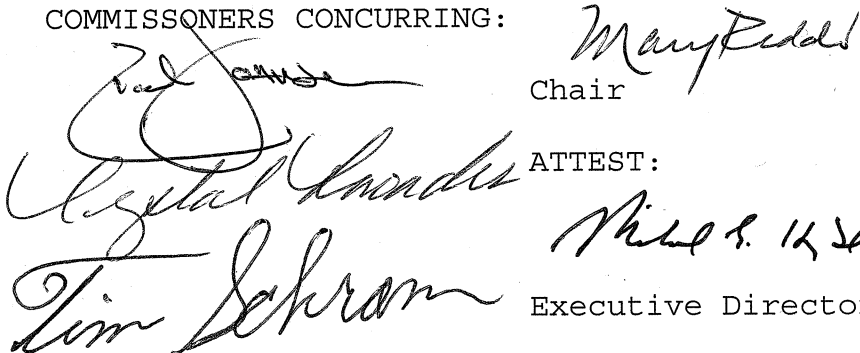 COMMISSONERS CONCURRING:
Rod Johnson
Crystal Rhoades
Tim Schram
Mary Ridder
Chair
ATTEST:
Executive Director